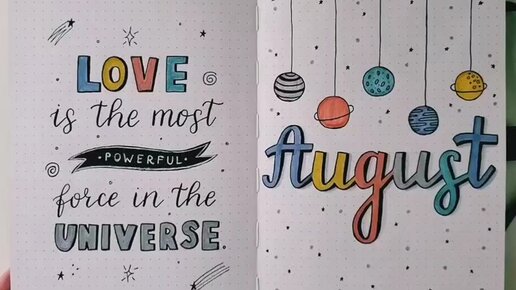 LOVE
is the most
·POWERFUL·
force in the
UNIVERSE.
August